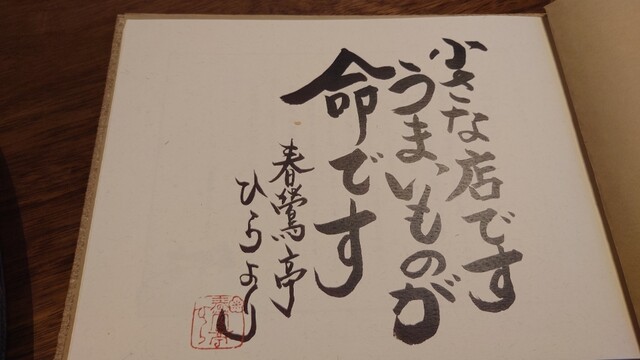 小さな店です
うまいものが
命です
春鶯亭
ひらより